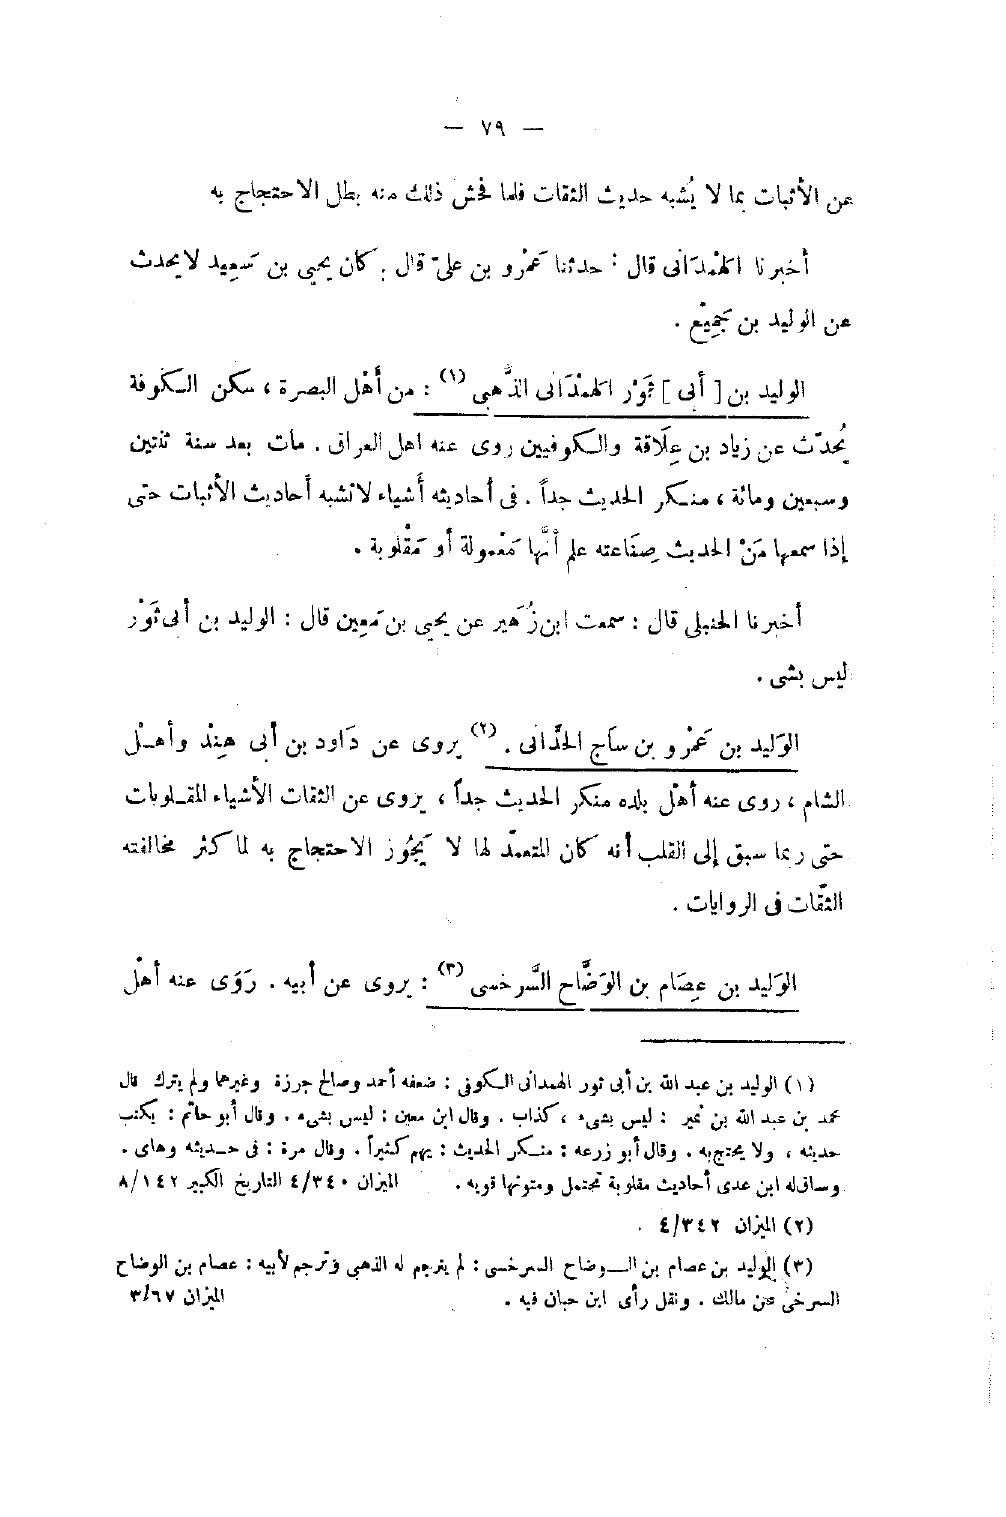 — ٧٩ —
عن الأثبات بما لا يُشبه حديث الثقات فلما فحش ذلك منه بطل الاحتجاج به
أخبرنا الهمْدَانى قال : حدثنا عَمْرو بن علىّ قال : كان يحيى بن سَعِيد لا يحدث
عن الوليد بن جَمِيْع .
الوليد بن [ أبى ] ثَوْر الهمْدَانى الذَّهبى (١) : من أهْل البصرة ، سكن الكوفة
يُحدّث عن زياد بن عِلَاقة والكوفيين روى عنه اهل العراق . مات بعد سنة ثنتين
وسبعين ومائة ، منكر الحديث جداً . فى أحاديثه أشياء لا تشبه أحاديث الأثبات حتى
إذا سمعها مَنْ الحديث صِنَاعته علم أنَّها مَعْمولة أو مَقْلوبة .
أخبرنا الحنبلى قال : سمعت ابن زُهَير عن يحيى بن مَعِين قال : الوليد بن أبى ثَوْر
ليس بشى .
الوَليد بن عَمْرو بن سَاج الحَدَّانى . (٢) يروى عن دَاود بن أبى هِنْد وأهْل
الشام ، روى عنه أهْل بلده منكر الحديث جداً ، يروى عن الثقات الأشياء المقلوبات
حتى ربما سبق إلى القلب أنه كان المتعمّد لها لا يَجُوز الاحتجاج به لما كثر مخالفته
الثّقات فى الروايات .
الوَليد بن عِصَام بن الوَضَّاح السَّرخسى (٣) : يروى عن أبيه . رَوَى عنه أهْل
(١) الوليد بن عبد الله بن أبى ثور الهمدانى الكوفى : ضعفه أحمد وصالح جرزة وغيرهما ولم يترك قال
محمد بن عبد الله بن نمير : ليس بشىء ، كذاب . وقال ابن معين : ليس بشىء . وقال أبو حاتم : يكتب
حديثه ، ولا يحتج به . وقال أبو زرعه : منكر الحديث : يهم كثيراً . وقال مرة : فى حديثه وهاى .
وساق له ابن عدى أحاديث مقلوبة تحتمل ومتونها قويه . الميزان ٤/٣٤٠ التاريخ الكبير ٨/١٤٢
(٢) الميزان ٤/٣٤٢ .
(٣) الوليد بن عصام بن الوضاح السرخسى : لم يترجم له الذهبى وترجم لأبيه : عصام بن الوضاح
السرخسى عن مالك . ونقل رأى ابن حبان فيه . الميزان ٣/٦٧